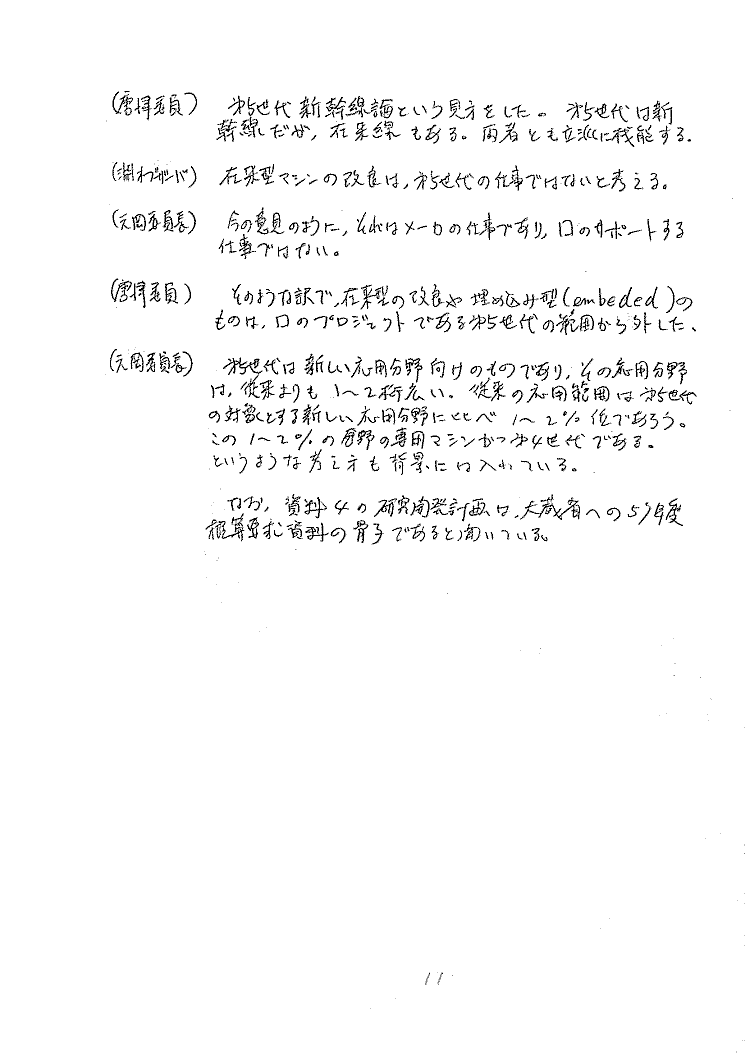 (唐津委員) 第5世代新幹線論という見方をした。第5世代は新
幹線だが,在来線もある。両者とも立派に機能する.
(渕オブザーバ) 在来型マシンの改良は,第5世代の仕事ではないと考える。
(元岡委員長) 今の意見のように,それはメーカの仕事であり,口のサポートする
仕事ではない。
(唐津委員) そのような訳で,在来型の改良や埋め込み型(embeded)の
ものは,口のプロジェクトである第5世代の範囲から外した、
(元岡委員長) 第5世代は新しい応用分野向けのものであり,その応用分野
は,従来よりも1〜2桁広い。従来の応用範囲は第5世代
の対象とする新しい応用分野にくらべ1〜2%位であろう。
この1〜2%の分野の専用マシンが第4世代である.
というような考え方も背景には入れている。
なお,資料4の研究開発計画は,大蔵省への57年度
概算要求資料の骨子であると聞いている。
11